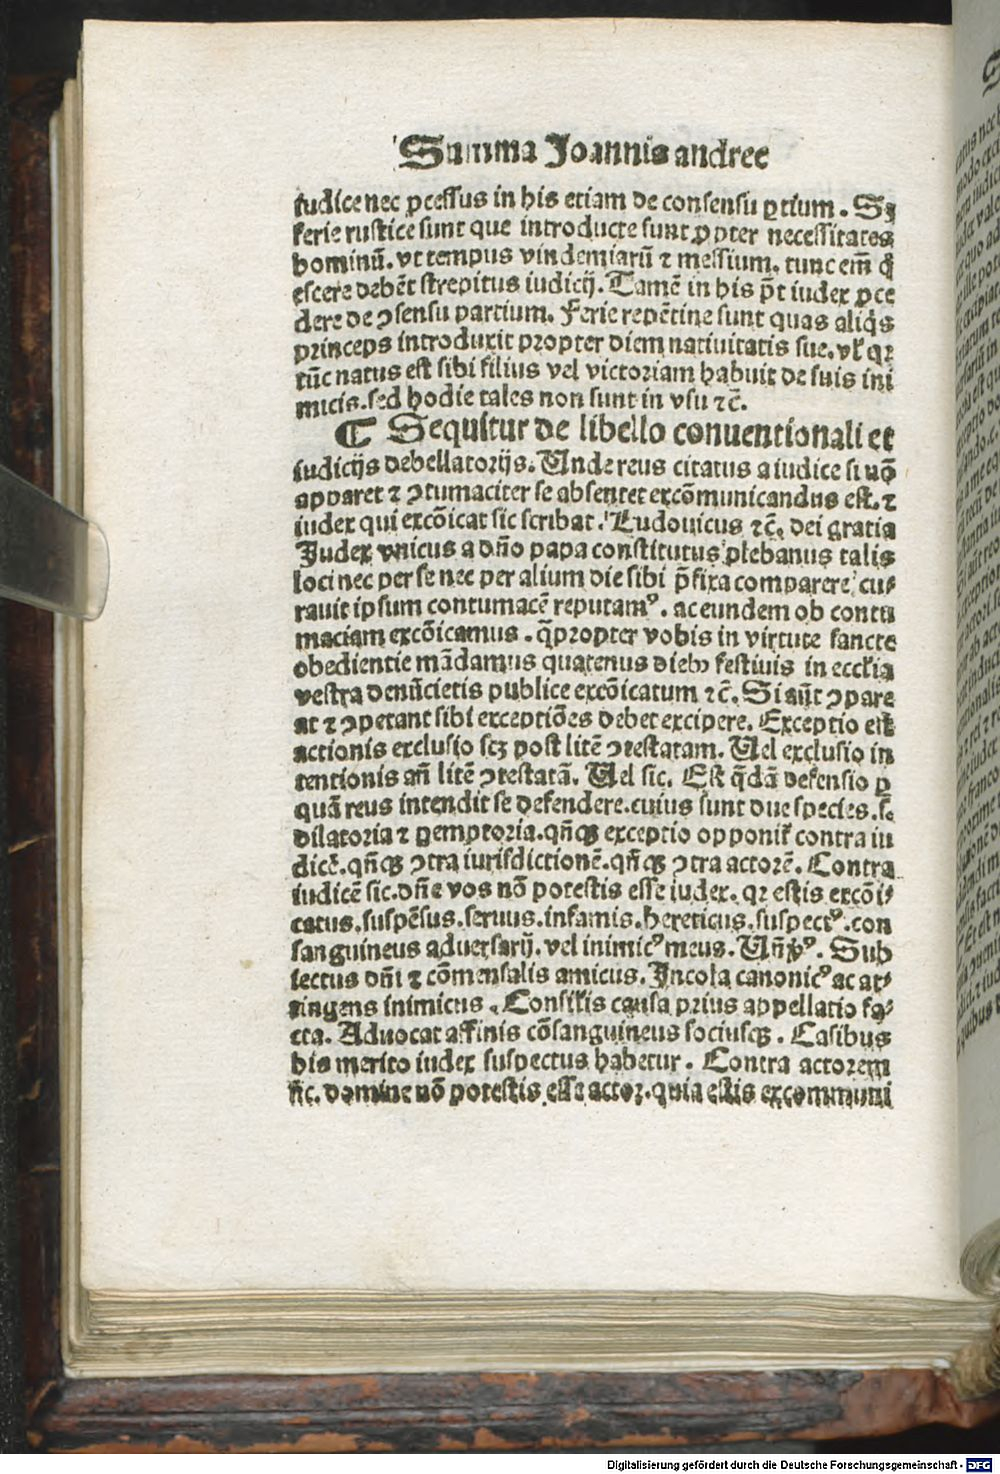 Summa Joannis andree
iudice nec ꝓcessus in his etiam de consensu ꝑtium. Sꝫ
ferie rustice sunt que introducte sunt ꝓpter necessitates
hominū. vt tempus vindemiarū ⁊ messium. tunc em̄ q̇
escere debēt strepitus iudicij. Tamē in his p̄t iudex ꝓce
dere de ↄsensu partium. Ferie repētine sunt quas aliq̇s
princeps introduxit propter diem natiuitatis sue. vl̓ qꝛ
tūc natus est sibi filius vel victoriam habuit de suis ini
micis. sed hodie tales non sunt in vsu ⁊c̄.
¶ Sequitur de libello conuentionali et
iudicijs debellatorijs. Unde reus citatus a iudice si nō
apparet ⁊ ↄtumaciter se absentet excōmunicandus est. ⁊
iudex qui excōicat sic scribat. Ludouicus ⁊c̄. dei gratia
Judex vnicus a dn̄o papa constitutus plebanus talis
loci nec per se nec per alium die sibi p̄fixa comparere cu⸗
rauit ipsum contumacē reputamꝰ. ac eundem ob contu
maciam excōicamus. q̄propter vobis in virtute sancte
obedientie mādamus quatenus dieb᷒ festiuis in eccl̓ia
vestra denūcietis publice excōicatum ⁊c̄. Si aūt ↄpare
at ⁊ ↄpetant sibi exceptiōes debet excipere. Exceptio est
actionis exclusio scꝫ post litē ↄtestatam. Uel exclusio in
tentionis an̄ litē ↄtestatā. Uel sic. Est q̄dā defensio ꝑ
quā reus intendit se defendere. cuius sunt due species. s.
dilatoria ⁊ ꝑemptoria. qn̄qꝫ exceptio opponit̓ contra iu
dicē. qn̄qꝫ ↄtra iurisdictionē. qn̄qꝫ ↄtra actorē. Contra
iudicē sic. dn̄e vos nō potestis esse iudex. qꝛ estis excōi⸗
catus. suspēsus. seruus. infamis. hereticus. suspectꝰ. con
sanguineus aduersarij. vel inimicꝰ meus. Sub
iectus dn̄i ⁊ cōmensalis amicus. Incola canonicꝰ ac at⸗
tingens inimicus. Consilis causa prius appellatio fa⸗
cta. Aduocat affinis cōsanguineus sociusqꝫ. Casibus
his merito iudex suspectus habetur. Contra actorem
sic. domine nō potestis esse actor. quia estis excommuni
Digitalisierung gefördert durch die Deutsche Forschungsgemeinschaft - DFG